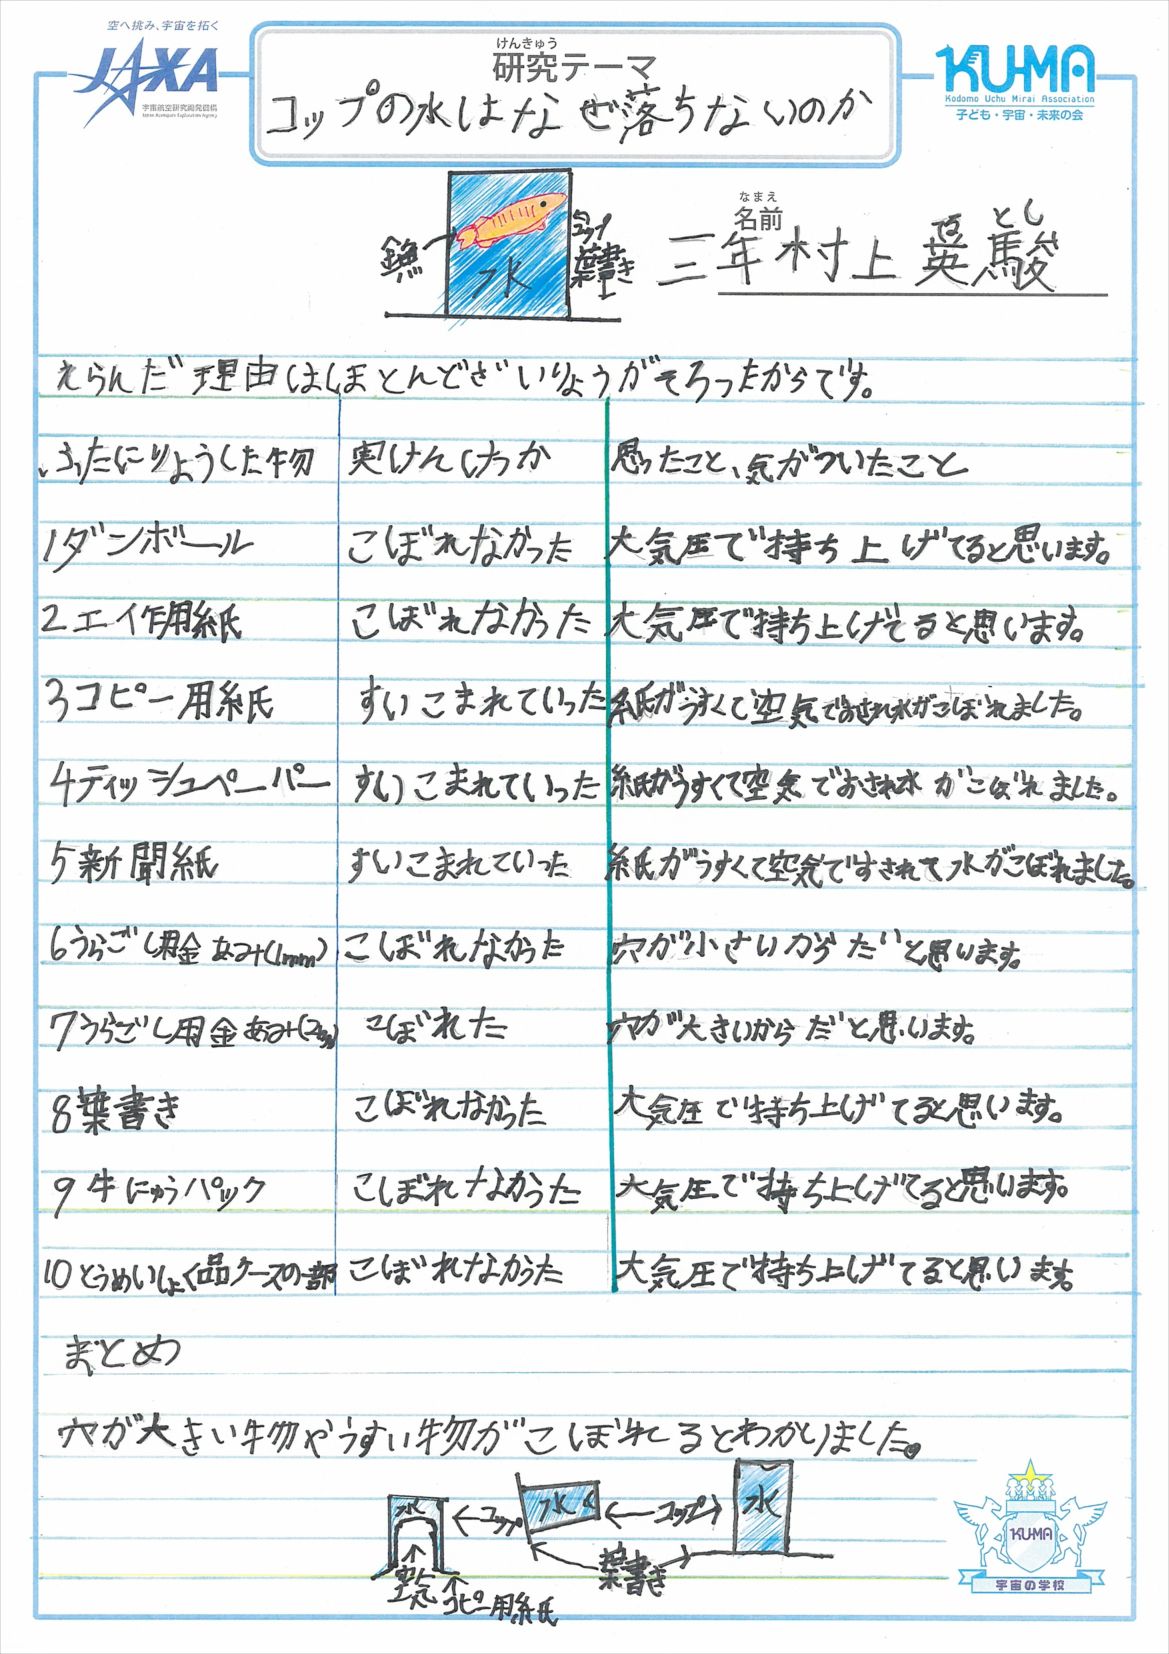 空へ挑み、宇宙を拓く
JAXA
宇宙航空研究開発機構
Japan Aerospace Exploration Agency
けんきゅう
研究テーマ
コップの水はなぜ落ちないのか
KU-MA
Kodomo Uchu Mirai Association
子ども・宇宙・未来の会
なまえ
名前
三年村上英駿
とし
魚
水
コップ
葉書き
えらんだ理由はほとんどざいりょうがそろったからです。
ふたにりょうした物 実けんけっか 思ったこと、気がついたこと
1ダンボール こぼれなかった 大気圧で持ち上げてると思います。
2エイ作用紙 こぼれなかった 大気圧で持ち上げてると思います。
3コピー用紙 すいこまれていった 紙がうすくて空気でおされ水がこぼれました。
4ティッシュペーパー すいこまれていった 紙がうすくて空気でおされ水がこぼれました。
5新聞紙 すいこまれていった 紙がうすくて空気ですされて水がこぼれました。
6うらごし用金あみ(1mm) こぼれなかった 穴が小さいからだと思います。
7うらごし用金あみ(2mm) こぼれた 穴が大きいからだと思います。
8葉書き こぼれなかった 大気圧で持ち上げてると思います。
9牛にゅうパック こぼれなかった 大気圧で持ち上げてると思います。
10とうめいしょく品ケースの一部 こぼれなかった 大気圧で持ち上げてると思います。
まとめ
穴が大きい物やうすい物がこぼれるとわかりました。
水 コップ 水 コップ 水
空気
コピー用紙
葉書き
KU-MA
宇宙の学校